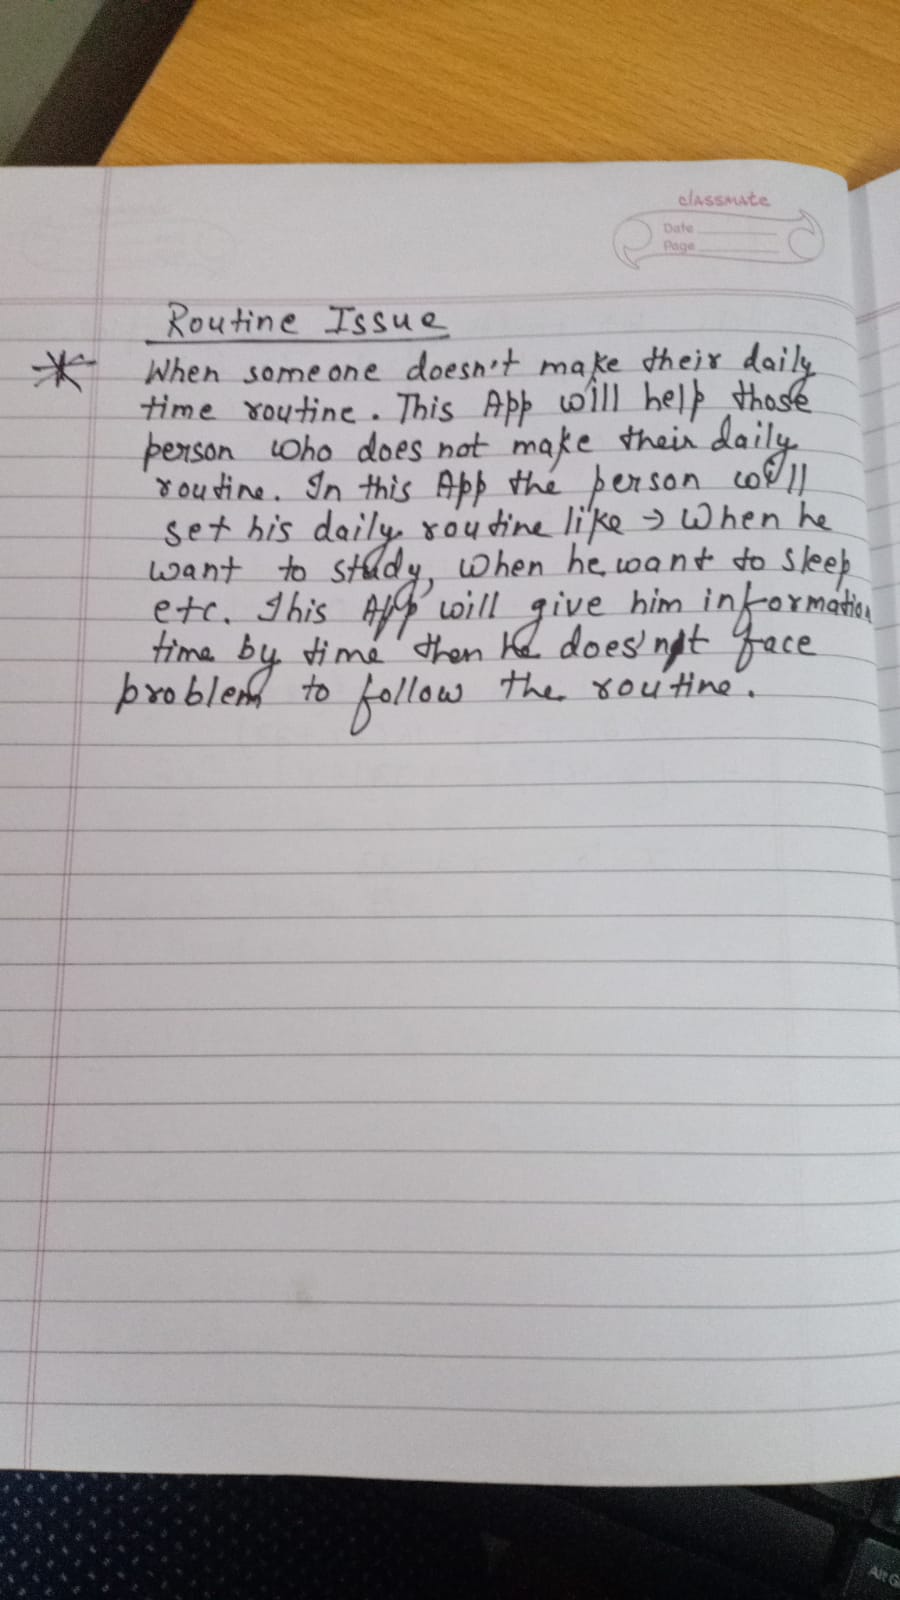 classmate
Date
Page
Routine Issue
When someone doesn't make their daily
time routine. This App will help those
person who does not make their daily
routine. In this App the person will
set his daily routine like → When he
want to study, when he want to sleep
etc. This App will give him information
time by time then he does'nt face
problem to follow the routine.
Alt G